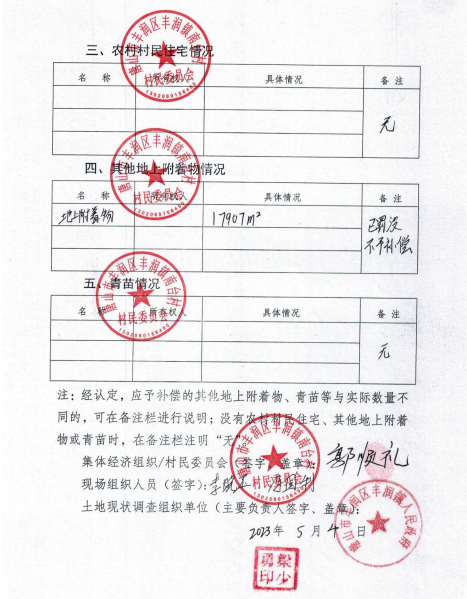 三、农村村民住宅情况
名 称 所有权人 具体情况 备 注
无
四、其他地上附着物情况
名 称 所有权人 具体情况 备 注
地上附着物 17907m² 已罚没
不予补偿
五、青苗情况
名 称 所有权人 具体情况 备 注
无
注：经认定，应予补偿的其他地上附着物、青苗等与实际数量不
同的，可在备注栏进行说明；没有农村村民住宅、其他地上附着
物或青苗时，在备注栏注明“无”
集体经济组织/村民委员会（签字、盖章）：郭顺礼
现场组织人员（签字）：
土地现状调查组织单位（主要负责人签字、盖章）：
2023年 5月 4日
唐山市丰润区丰润镇南台村
村民委员会
唐山市丰润区丰润镇南台村
村民委员会
唐山市丰润区丰润镇南台村
村民委员会
唐山市丰润区丰润镇南台村
村民委员会
唐山市丰润区丰润镇人民政府